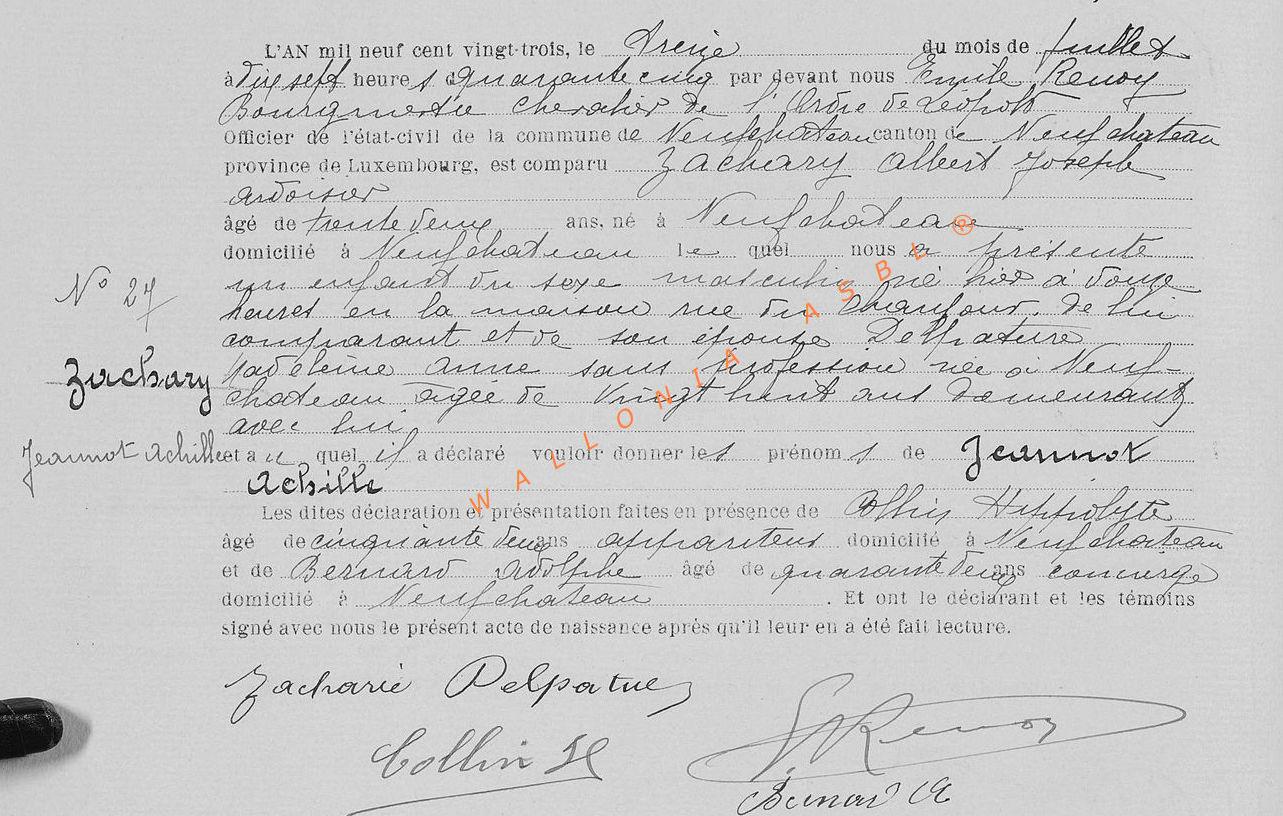 L'AN mil neuf cent vingt-trois, le treize du mois de Juillet
à dix sept heures quarante cinq par devant nous Emile Renoy
Bourgmestre Chevalier de l'Ordre de Léopold
Officier de l'état-civil de la commune de Neufchateau canton de Neufchateau
province de Luxembourg, est comparu Zachary Albert Joseph
ardoisier
âgé de trente deux ans, né à Neufchateau
domicilié à Neufchateau le quel nous a présenté
un enfant du sexe masculin né hier à douze
heures en la maison rue du Chaufour, de lui
comparant et de son épouse Delpature
Madeleine Anne sans profession née à Neuf-
chateau agée de vingt huit ans demeurant
avec lui
et au quel il a déclaré vouloir donner les prénoms de Jeannot
Achille
Les dites déclaration et présentation faites en présence de Collin Hippolyte
âgé de cinquante deux ans appariteur domicilié à Neufchateau
et de Bernard Adolphe âgé de quarante deux ans concierge
domicilié à Neufchateau. Et ont le déclarant et les témoins
signé avec nous le présent acte de naissance après qu'il leur en a été fait lecture.
No 27
Zachary
Jeannot Achille
Zacharie Delpature
Collin H
E. Renoy
Bernard A
WALLONIA ASBL ®